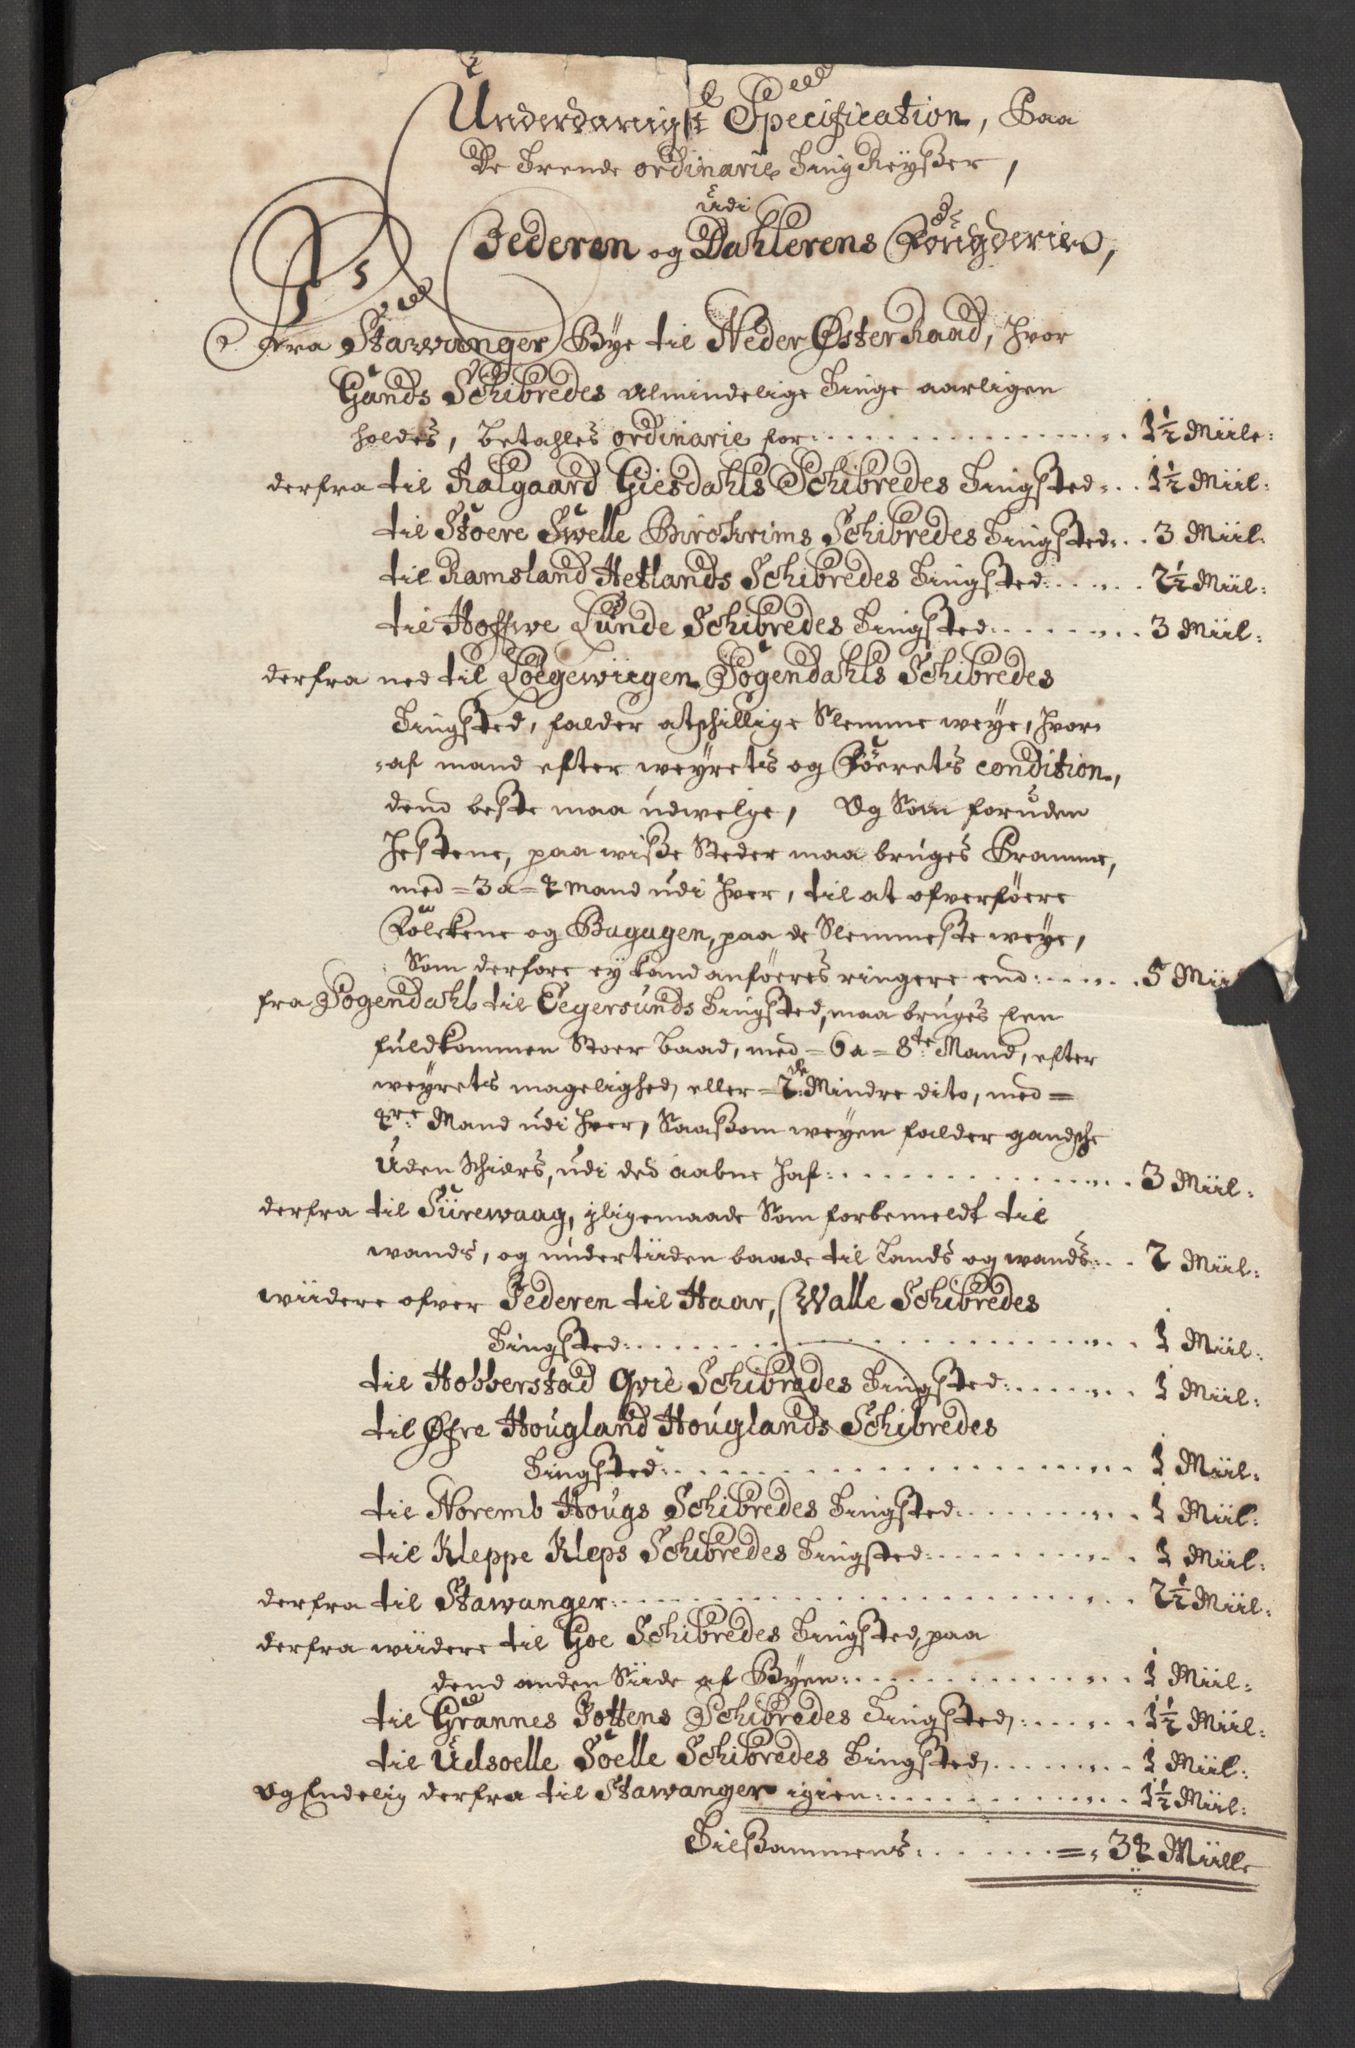 Underdanigst Specification, Paa
De Trende ordinarie Ting Reyßer,
udi
Jederen og Dahlerens Fougderier,
Fra Stawanger Bye til Neder Øster Raad, hvor
Gands Schibredes Almindelige Tinge aarligen
holdes, betahles ordinarie for . . . 1½ Miile:
derfra til Aalgaard Giesdahls Schibredes Tingsted: . . 1½ Miil:
til Stoere Swelle Birchreims Schibredes Tingsted: . . 3 Miil:
til Ramsland Hetlands Schibredes Tingsted: . . . 2½ Miil:
til Hoffwe Lunde Schibredes Tingsted: . . . 3 Miil:
derfra ned til Soegewiigen Sogendahls Schibredes
Tingsted, falder atschillige Slemme weye, hvor-
-af mand efter weyrets og Föerets condition,
dend beste maa udwelge, Og Som foruden
hestene, paa wiße Steder maa bruges Pramme,
med = 3 a = 4 Mand udi hver, til at ofverföere
Folckene og Bagagen, paa de Slemmeste weye,
Som derfore ey kand anföeres ringere end: . . . 5 Mii
fra Sogendahl til Eegersunds Tingsted, maa bruges Een
fuldkommen Stoer Baad, med = 6 a = 8te Mand, efter
weyrets magelighed, eller = 2de Mindre dito, med =
4re Mand udi hver, Saasom weyen falder gandsche
uden Schiers, udi ded aabne haf: . . . 3 Miil:
derfra til Sürewaag, jligemaade Som forbemeldt til
wands, og undertiiden baade til Lands og wands: . . 2 Miil:
wiidere ofver Jederen til Haar, Walle Schibredes
Tingsted: . . . 1 Miil:
til Hobberstad Qvie Schibredes Tingsted: . . . 1 Miil:
til Øfre Hougland Houglands Schibredes
Tingsted: . . . 1 Miil:
til Noremb Hougs Schibredes Tingsted: . . . 1 Miil:
til Kleppe Kleps Schibredes Tingsted: . . . 1 Miil:
derfra til Stawanger: . . . 2½ Miil:
derfra wiidere til Goe Schibredes Tingsted, paa
dend anden Siide af Byen: . . . 1 Miil:
til Grannes Jottens Schibredes Tingsted: . . . 1½ Miil:
til Udsoelle Soelle Schibredes Tingsted, . . . 1 Miil:
Og Endelig derfra til Stawanger igien: . . . 1½ Miil:
Tilsammens: . . . =: 34 Miille